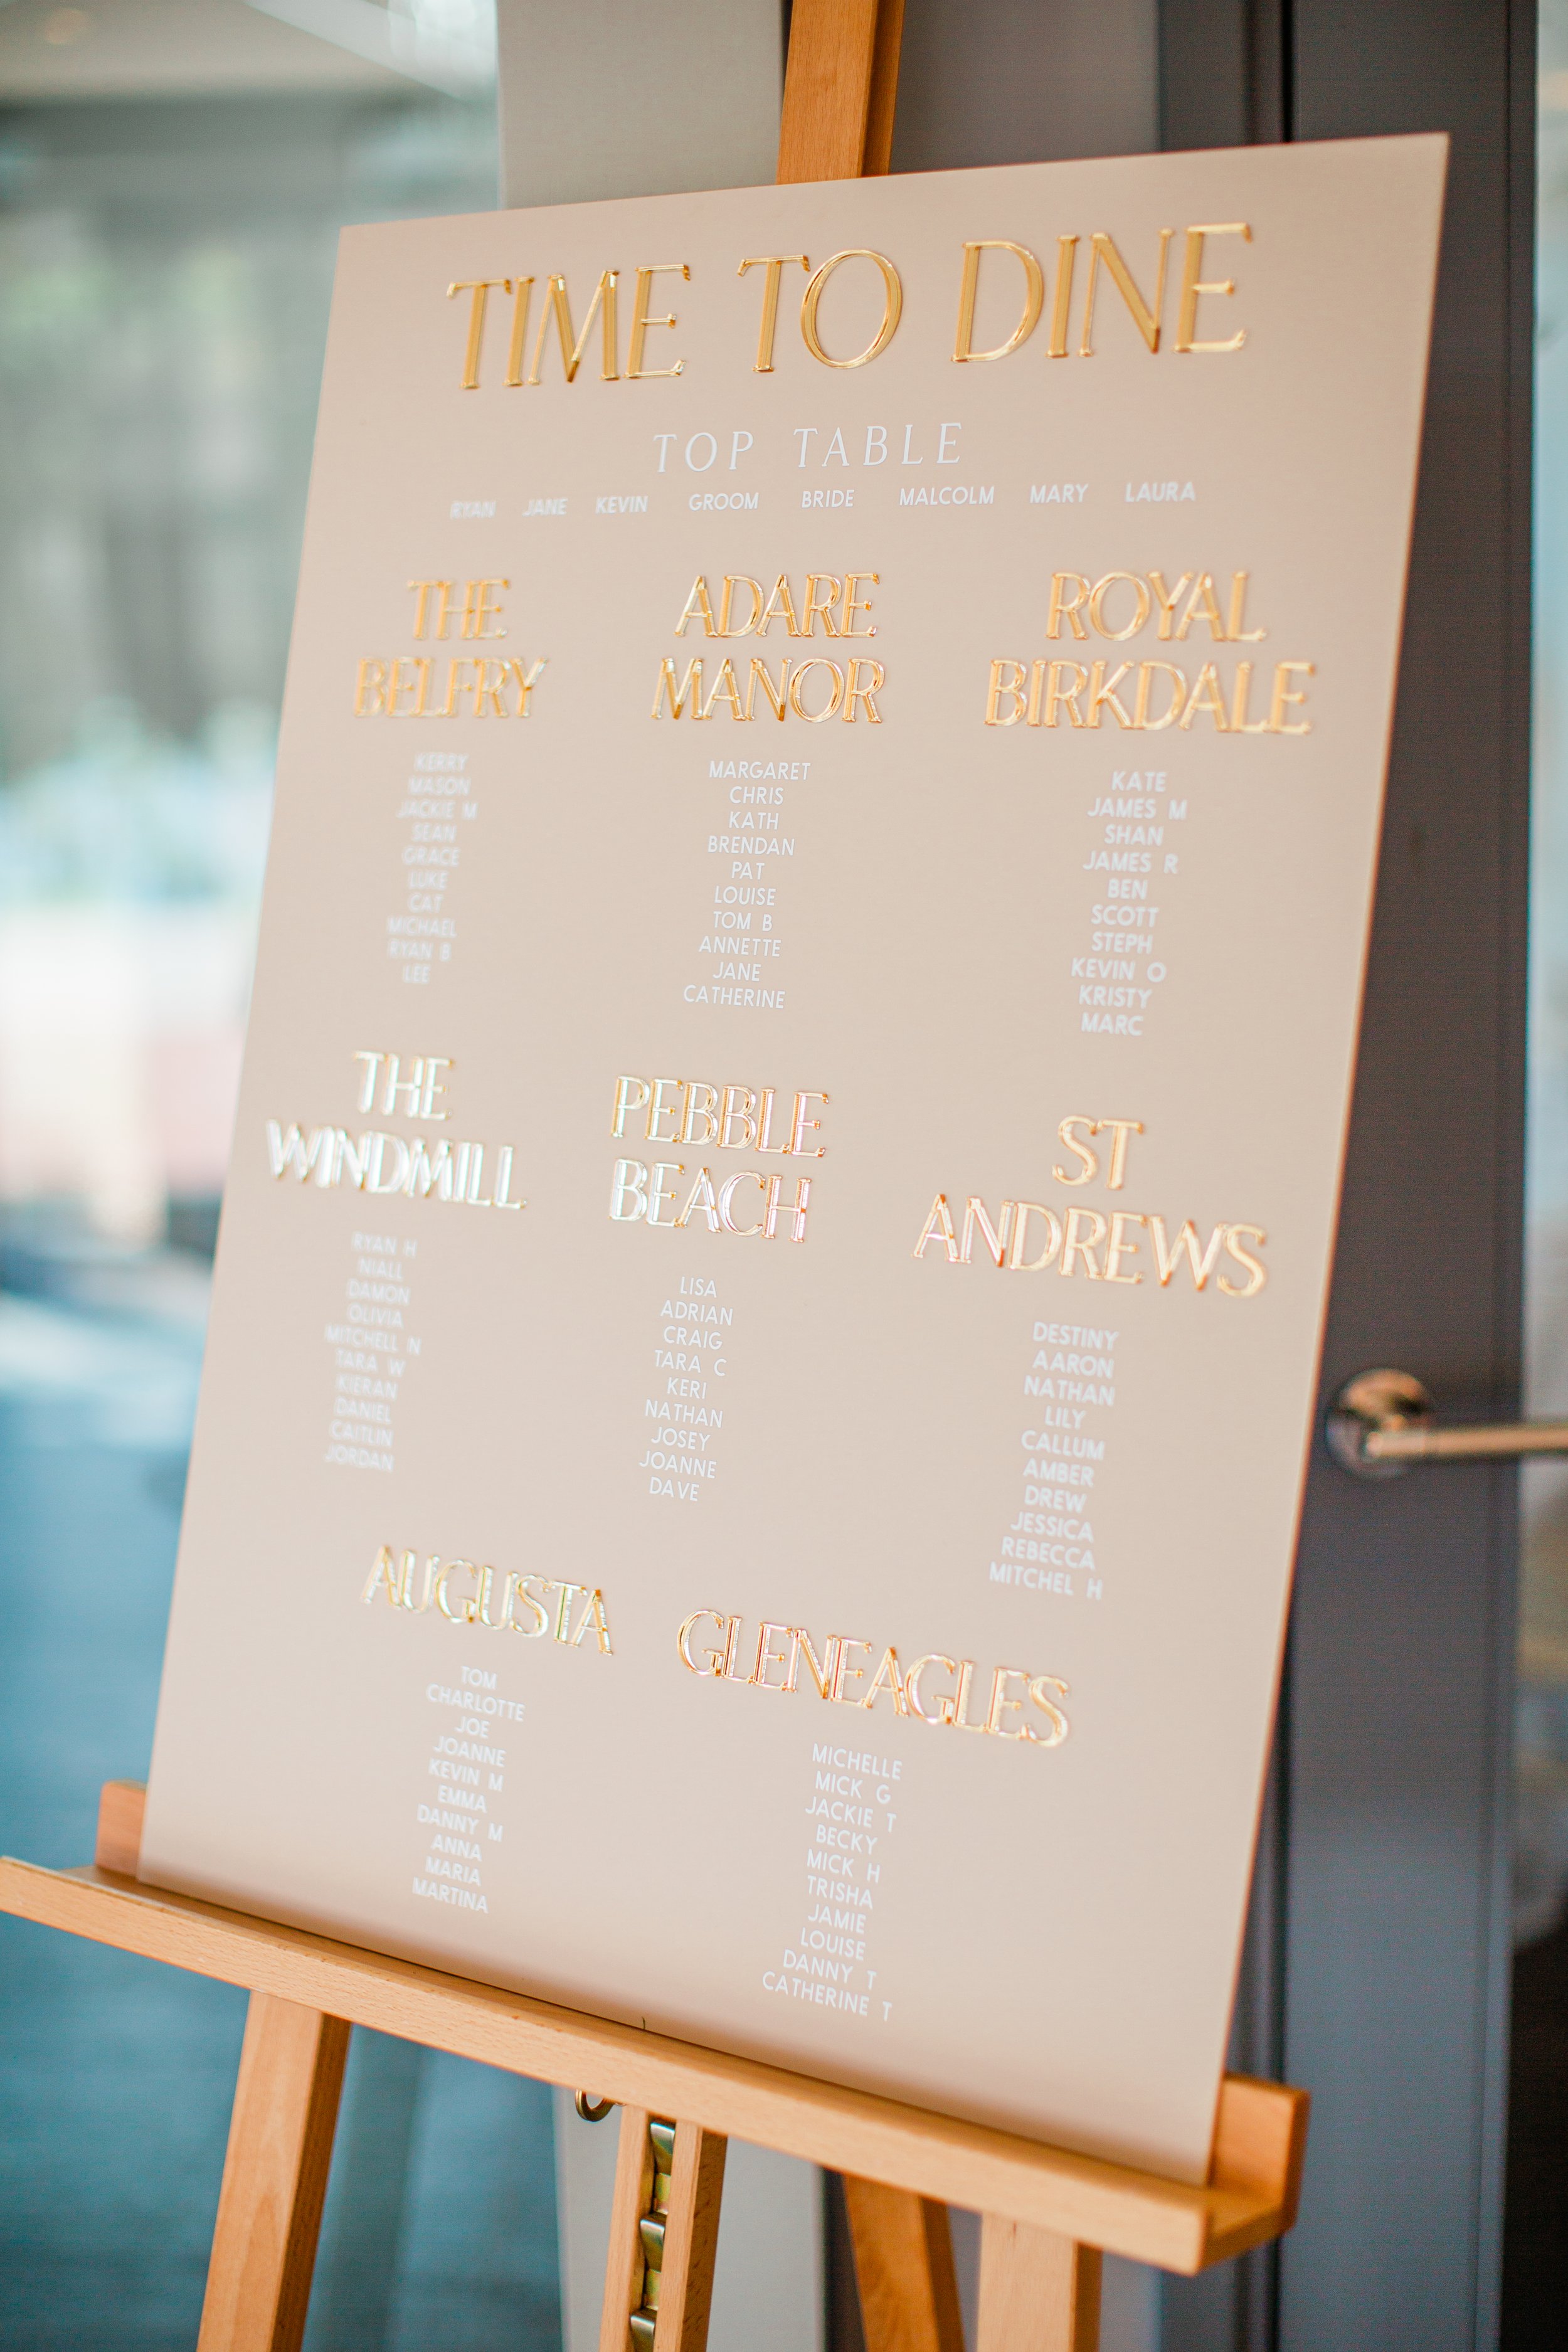 TIME TO DINE
TOP TABLE
RYAN JANE KEVIN GROOM BRIDE MALCOLM MARY LAURA
THE
BELFRY
KERRY
MASON
JACKIE M
SEAN
GRACE
LUKE
CAT
MICHAEL
RYAN B
LEE
ADARE
MANOR
MARGARET
CHRIS
KATH
BRENDAN
PAT
LOUISE
TOM B
ANNETTE
JANE
CATHERINE
ROYAL
BIRKDALE
KATE
JAMES M
SHAN
JAMES R
BEN
SCOTT
STEPH
KEVIN O
KRISTY
MARC
THE
WINDMILL
RYAN H
NIALL
DAMON
OLIVIA
MITCHELL N
TARA W
KIERAN
DANIEL
CAITLIN
JORDAN
PEBBLE
BEACH
LISA
ADRIAN
CRAIG
TARA C
KERI
NATHAN
JOSEY
JOANNE
DAVE
ST
ANDREWS
DESTINY
AARON
NATHAN
LILY
CALLUM
AMBER
DREW
JESSICA
REBECCA
MITCHEL H
AUGUSTA
TOM
CHARLOTTE
JOE
JOANNE
KEVIN M
EMMA
DANNY M
ANNA
MARIA
MARTINA
GLENEAGLES
MICHELLE
MICK G
JACKIE T
BECKY
MICK H
TRISHA
JAMIE
LOUISE
DANNY T
CATHERINE T